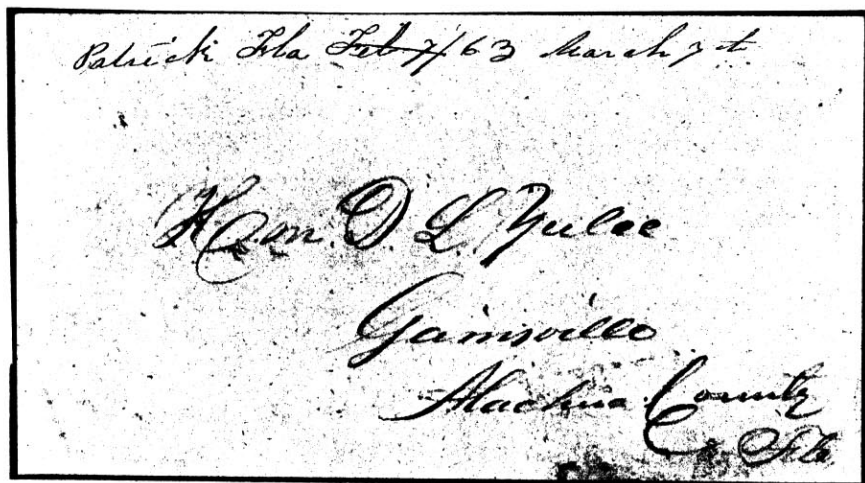 Fla Feb 7/63 March 7
Hon. D. L. Yulee
Gainsville
Alachua County
Fla